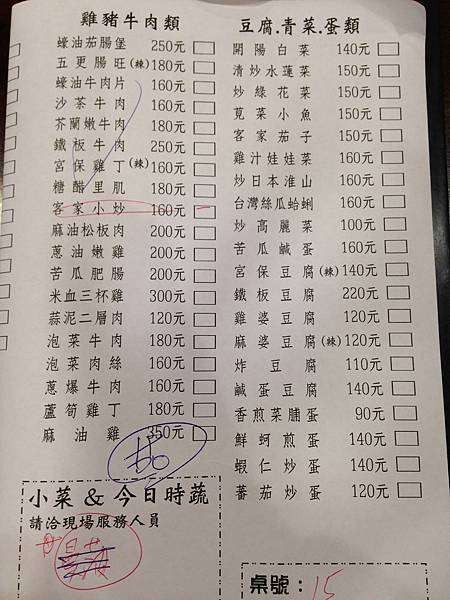 雞豬牛肉類
蠔油茄腸堡 250元
五更腸旺(辣) 180元
蠔油牛肉片 160元
沙茶牛肉 160元
芥蘭嫩牛肉 180元
鐵板牛肉 250元
宮保雞丁(辣) 160元
糖醋里肌 180元
客家小炒 160元
麻油松板肉 200元
蔥油嫩雞 200元
苦瓜肥腸 200元
米血三杯雞 300元
蒜泥二層肉 120元
泡菜牛肉 180元
泡菜肉絲 160元
蔥爆牛肉 160元
蘆筍雞丁 180元
麻油雞 350元
小菜 & 今日時蔬
請洽現場服務人員
豆腐.青菜.蛋類
開陽白菜 140元
清炒水蓮菜 150元
炒綠花菜 150元
莧菜小魚 150元
客家茄子 150元
雞汁娃娃菜 160元
炒日本淮山 160元
台灣絲瓜蛤蜊 160元
炒高麗菜 100元
苦瓜鹹蛋 160元
宮保豆腐(辣) 140元
鐵板豆腐 220元
雞婆豆腐 120元
麻婆豆腐(辣) 120元
炸豆腐 110元
鹹蛋豆腐 140元
香煎菜脯蛋 90元
鮮蚵煎蛋 140元
蝦仁炒蛋 140元
蕃茄炒蛋 120元
桌號: 15